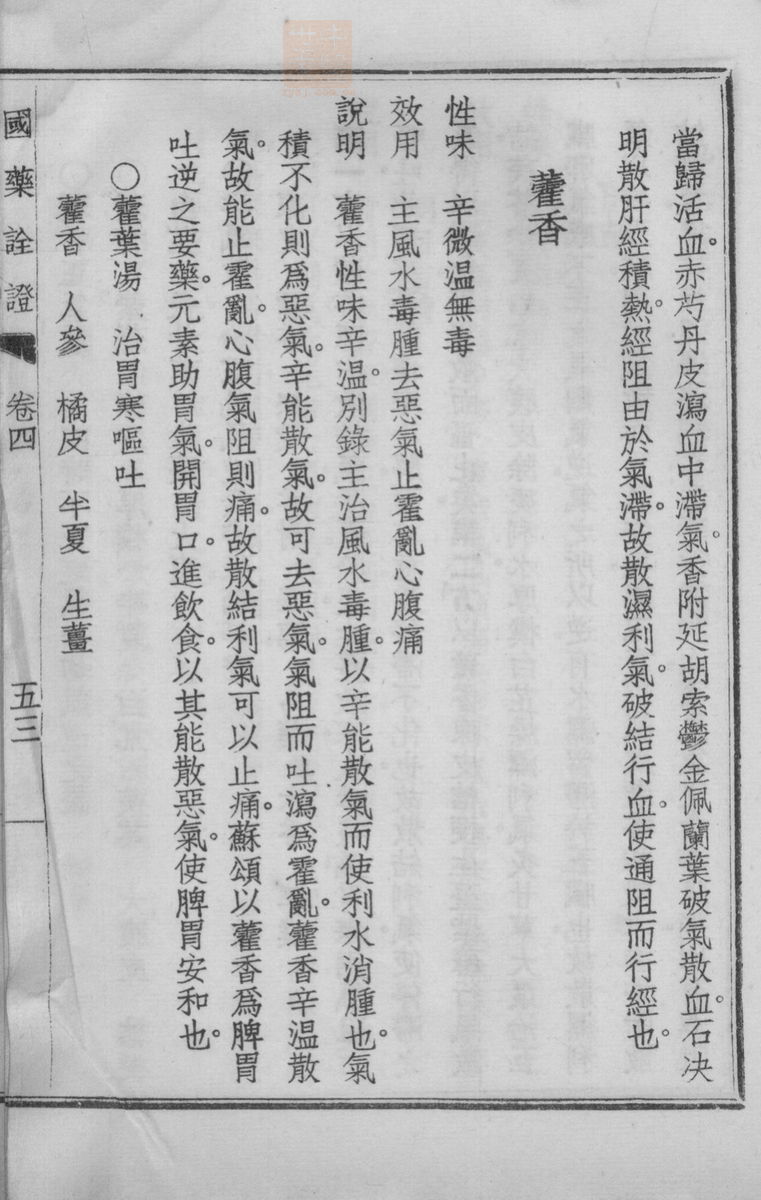 當歸活血。赤芍丹皮瀉血中滯氣。香附延胡索鬱金佩蘭葉破氣散血。石決
明散肝經積熱。經阻由於氣滯。故散濕利氣。破結行血。使通阻而行經也。
藿香
性味　辛微温無毒
效用　主風水毒腫去惡氣止霍亂心腹痛
說明　藿香性味辛温。別錄主治風水毒腫。以辛能散氣而使利水消腫也。氣
積不化則爲惡氣。辛能散氣。故可去惡氣。氣阻而吐瀉爲霍亂。藿香辛温散
氣。故能止霍亂。心腹氣阻則痛。故散結利氣可以止痛。蘇頌以藿香爲脾胃
吐逆之要藥。元素助胃氣。開胃口。進飲食。以其能散惡氣。使脾胃安和也。
○藿葉湯　治胃寒嘔吐
藿香　人參　橘皮　半夏　生薑
國藥詮證　卷四　五三